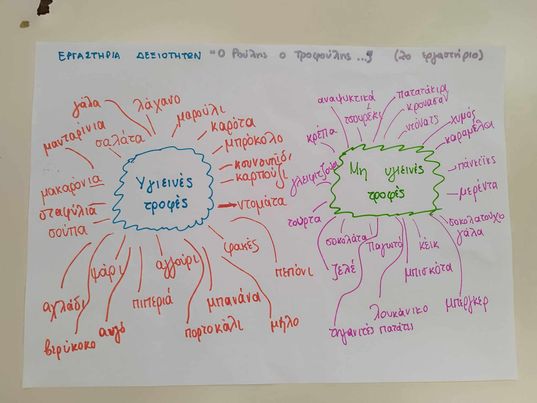 ΕΡΓΑΣΤΗΡΙΑ ΔΕΞΙΟΤΗΤΩΝ "Ο Ρούλης ο Τροφούλης...." (2ο εργαστήριο)
Υγιεινές
τροφές
γάλα
λάχανο
μαρούλι
μανταρίνια
σαλάτα
καρότα
μπρόκολο
κουνουπίδι
καρπούζι
μακαρόνια
σταφύλια
ντομάτα
σούπα
φακές
πεπόνι
ψάρι
αγγούρι
αχλάδι
πιπεριά
μπανάνα
βερίκοκο
αυγό
πορτοκάλι
μήλο
Μη υγιεινές
τροφές
αναψυκτικά
τσουρέκι
πατατάκια
κρουασάν
ντόνατς
χυμός
καραμέλα
κρέπα
γλειφιτζούρι
πάνκεικ
μερέντα
τούρτα
σοκολατούχο
γάλα
σοκολάτα
παγωτό
κέικ
ζελέ
μπισκότα
λουκάνικο
μπέργκερ
τηγανιτές πατάτες